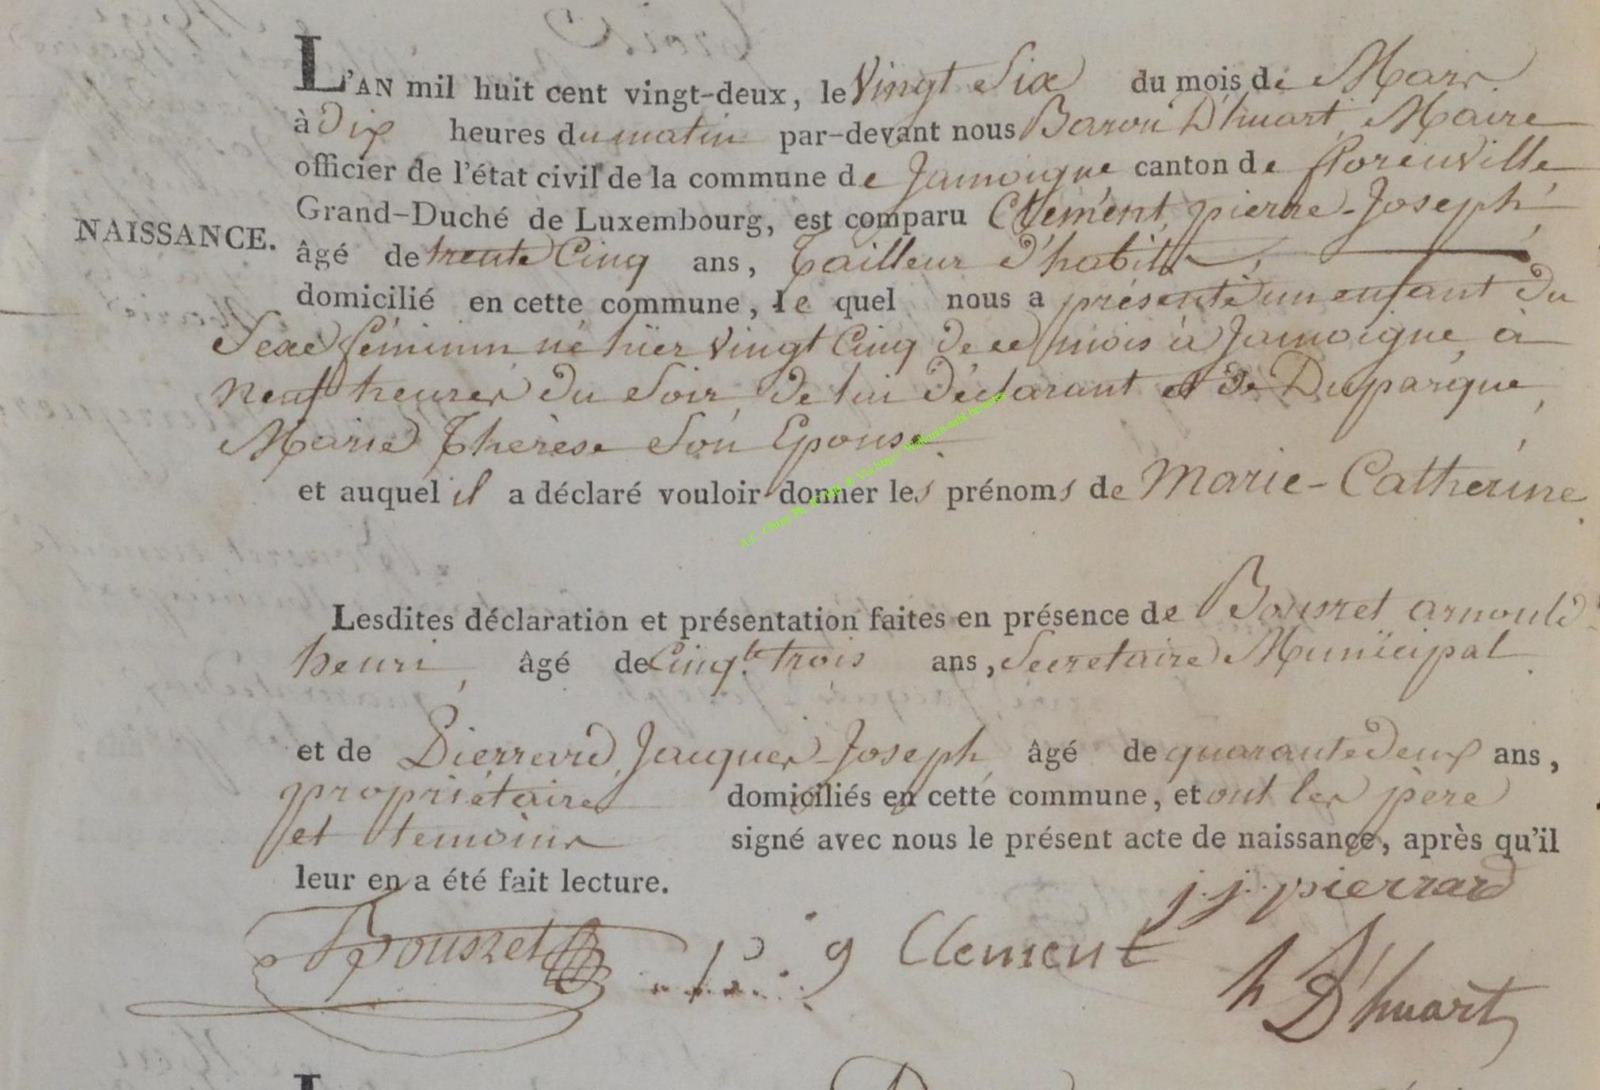 L'AN mil huit cent vingt-deux, le Vingt Six du mois de Mars
à dix heures du matin par-devant nous Baron D'huart, Maire
officier de l'état civil de la commune de Jamoigne canton de florenville
NAISSANCE.
Grand-Duché de Luxembourg, est comparu Clement, pierre-Joseph,
âgé de trente Cinq ans, Tailleur d'habits,
domicilié en cette commune, le quel nous a présenté un enfant du
Sexe féminin né hier vingt Cinq de ce mois à Jamoigne, à
neuf heures du Soir, de lui déclarant et de Duparque,
Marie Thérèse Son Epouse.
et auquel il a déclaré vouloir donner les prénoms de Marie-Catherine.
Lesdites déclaration et présentation faites en présence de Bousret arnould
henri, âgé de Cinqte trois ans, Secretaire Municipal.
et de Pierrard, Jacques-Joseph, âgé de quarante deux ans,
propriétaire domiciliés en cette commune, et ont les père
et temoins signé avec nous le présent acte de naissance, après qu'il
leur en a été fait lecture.
j. j. pierrard
Bousret
Clement
h D'huart